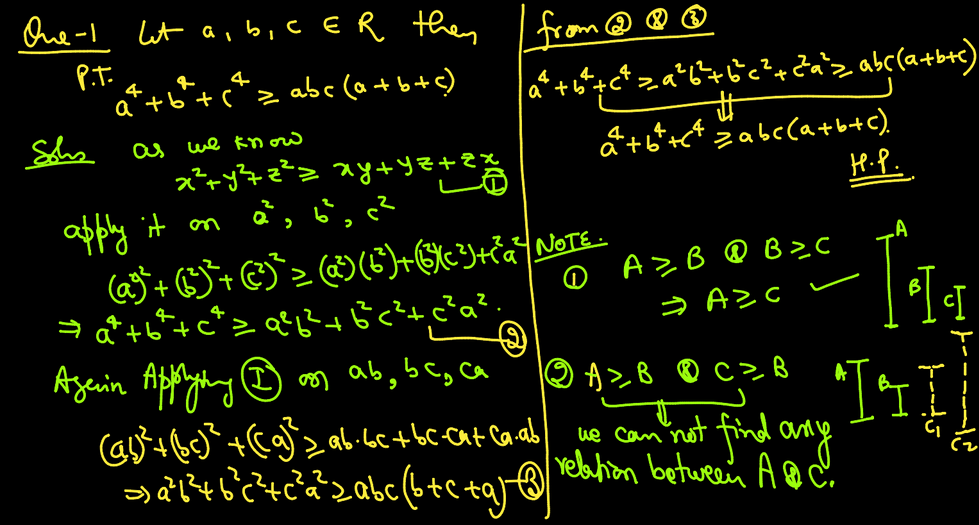 Que-1 Let a, b, c ∈ R then
P.T.
a⁴+b⁴+c⁴ ≥ abc(a+b+c)
Soln as we know
x²+y²+z² ≥ xy+yz+zx ①
apply it on a², b², c²
(a²)²+(b²)²+(c²)² ≥ (a²)(b²)+(b²)(c²)+c²a²
⇒ a⁴+b⁴+c⁴ ≥ a²b²+b²c²+c²a². ②
Again Applying Ⓘ on ab, bc, ca
(ab)²+(bc)²+(ca)² ≥ ab·bc+bc·ca+ca·ab
⇒ a²b²+b²c²+c²a² ≥ abc(b+c+a) ③
from ② & ③
a⁴+b⁴+c⁴ ≥ a²b²+b²c²+c²a² ≥ abc(a+b+c)
⇓
a⁴+b⁴+c⁴ ≥ abc(a+b+c).
H.P.
NOTE.
① A ≥ B & B ≥ C
⇒ A ≥ C ✓
A B C
② A ≥ B & C ≥ B
⇓
we can not find any
relation between A & C.
A B C₁ C₂